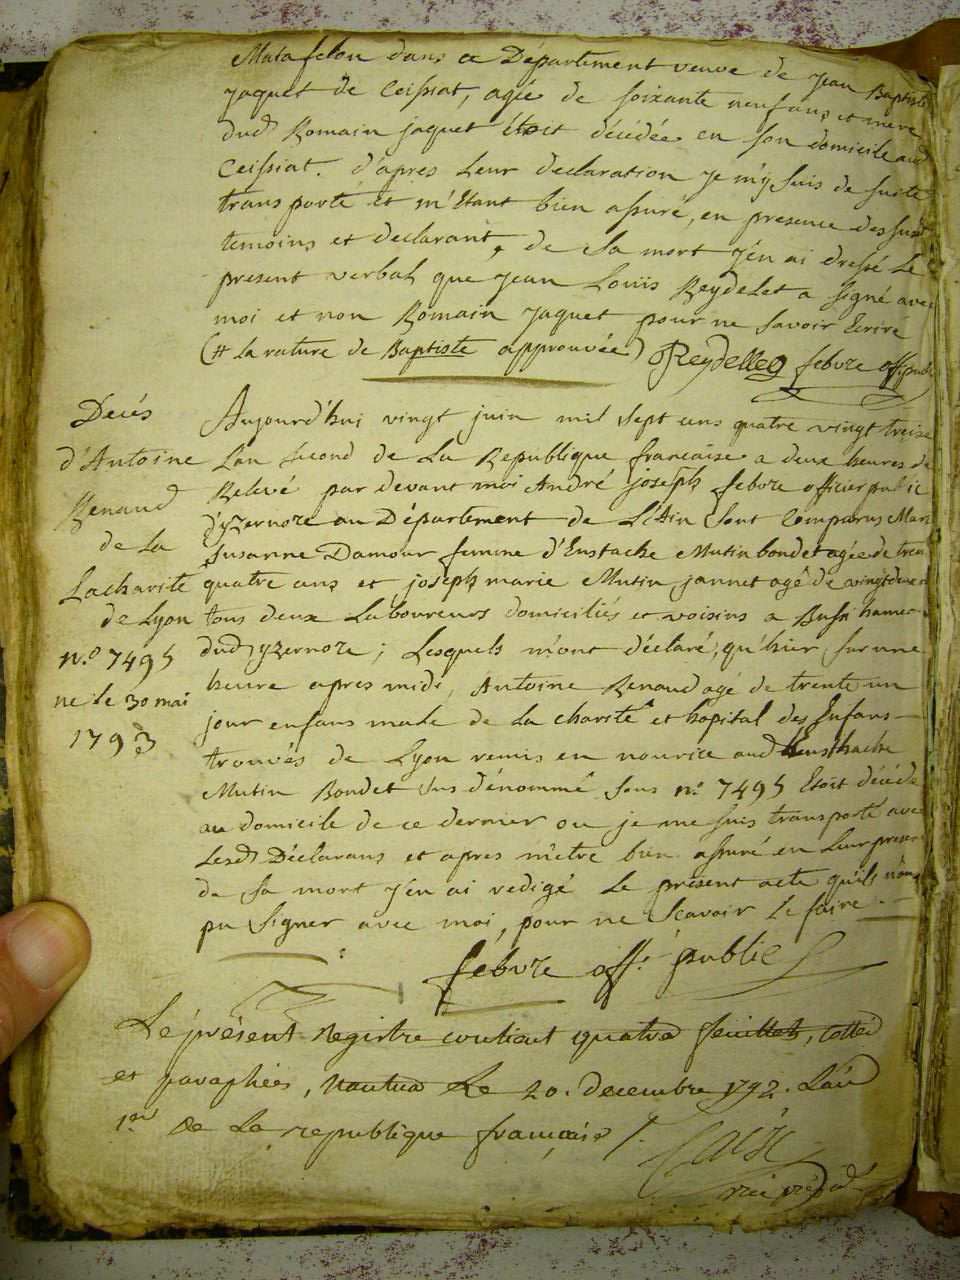 Matafelon dans ce Département veuve de jean Baptiste
jaquet de Ceissiat, agée de soixante neuf ans et mere
dud Romain jaquet étoit décédée en son domicile aud
Ceissiat. d'apres leur declaration je m'y suis de suite
transporté et m'étant bien assuré, en presence des susd
temoins et declarant, de sa mort j'en ai dressé le
present verbal que jean Louis Reydelet a signé avec
moi et non Romain jaquet pour ne savoir Ecrire
(# la rature de Baptiste approuvée) Reydellet febvre off. public
Decés
d'Antoine
Renaud
de La
Lacharité
de Lyon
n.º 7495
ne le 30 mai
1793
Aujourd'hui vingt juin mil sept cens quatre vingt treize
Lan second de La Republique francaise a deux heures de
Relevé par devant moi André joseph febvre officier public
d'yzernore au Département de L'Ain sont Comparus Marie
Susanne Damour femme d'Eustache Mutin bondet agée de trente
quatre ans et joseph marie Mutin jannet agé de vingt deux
tous deux Laboureurs domiciliés et voisins a
dud yzernore; Lesquels m'ont déclaré, qu'hier sur une
heure apres midi, Antoine Renaud agé de trente un
jour enfans male de La charité et hopital des Enfans
trouvés de Lyon remis en nourice aud Eusthache
Mutin Bondet sus dénommé sous n.º 7495 Etoit décédé
au domicile de ce dernier ou je me suis transporté avec
Lesd Déclarans et apres m'etre bien assuré en Leur presence
de sa mort j'en ai redigé Le présent acte qu'ils n'ont
pu signer avec moi, pour ne Scavoir Le faire.
febvre off. public
Le présent Registre contient quatre feuillets, cottés
et paraphées, Le 20. decembre 1792. L'an
1er de La republique française